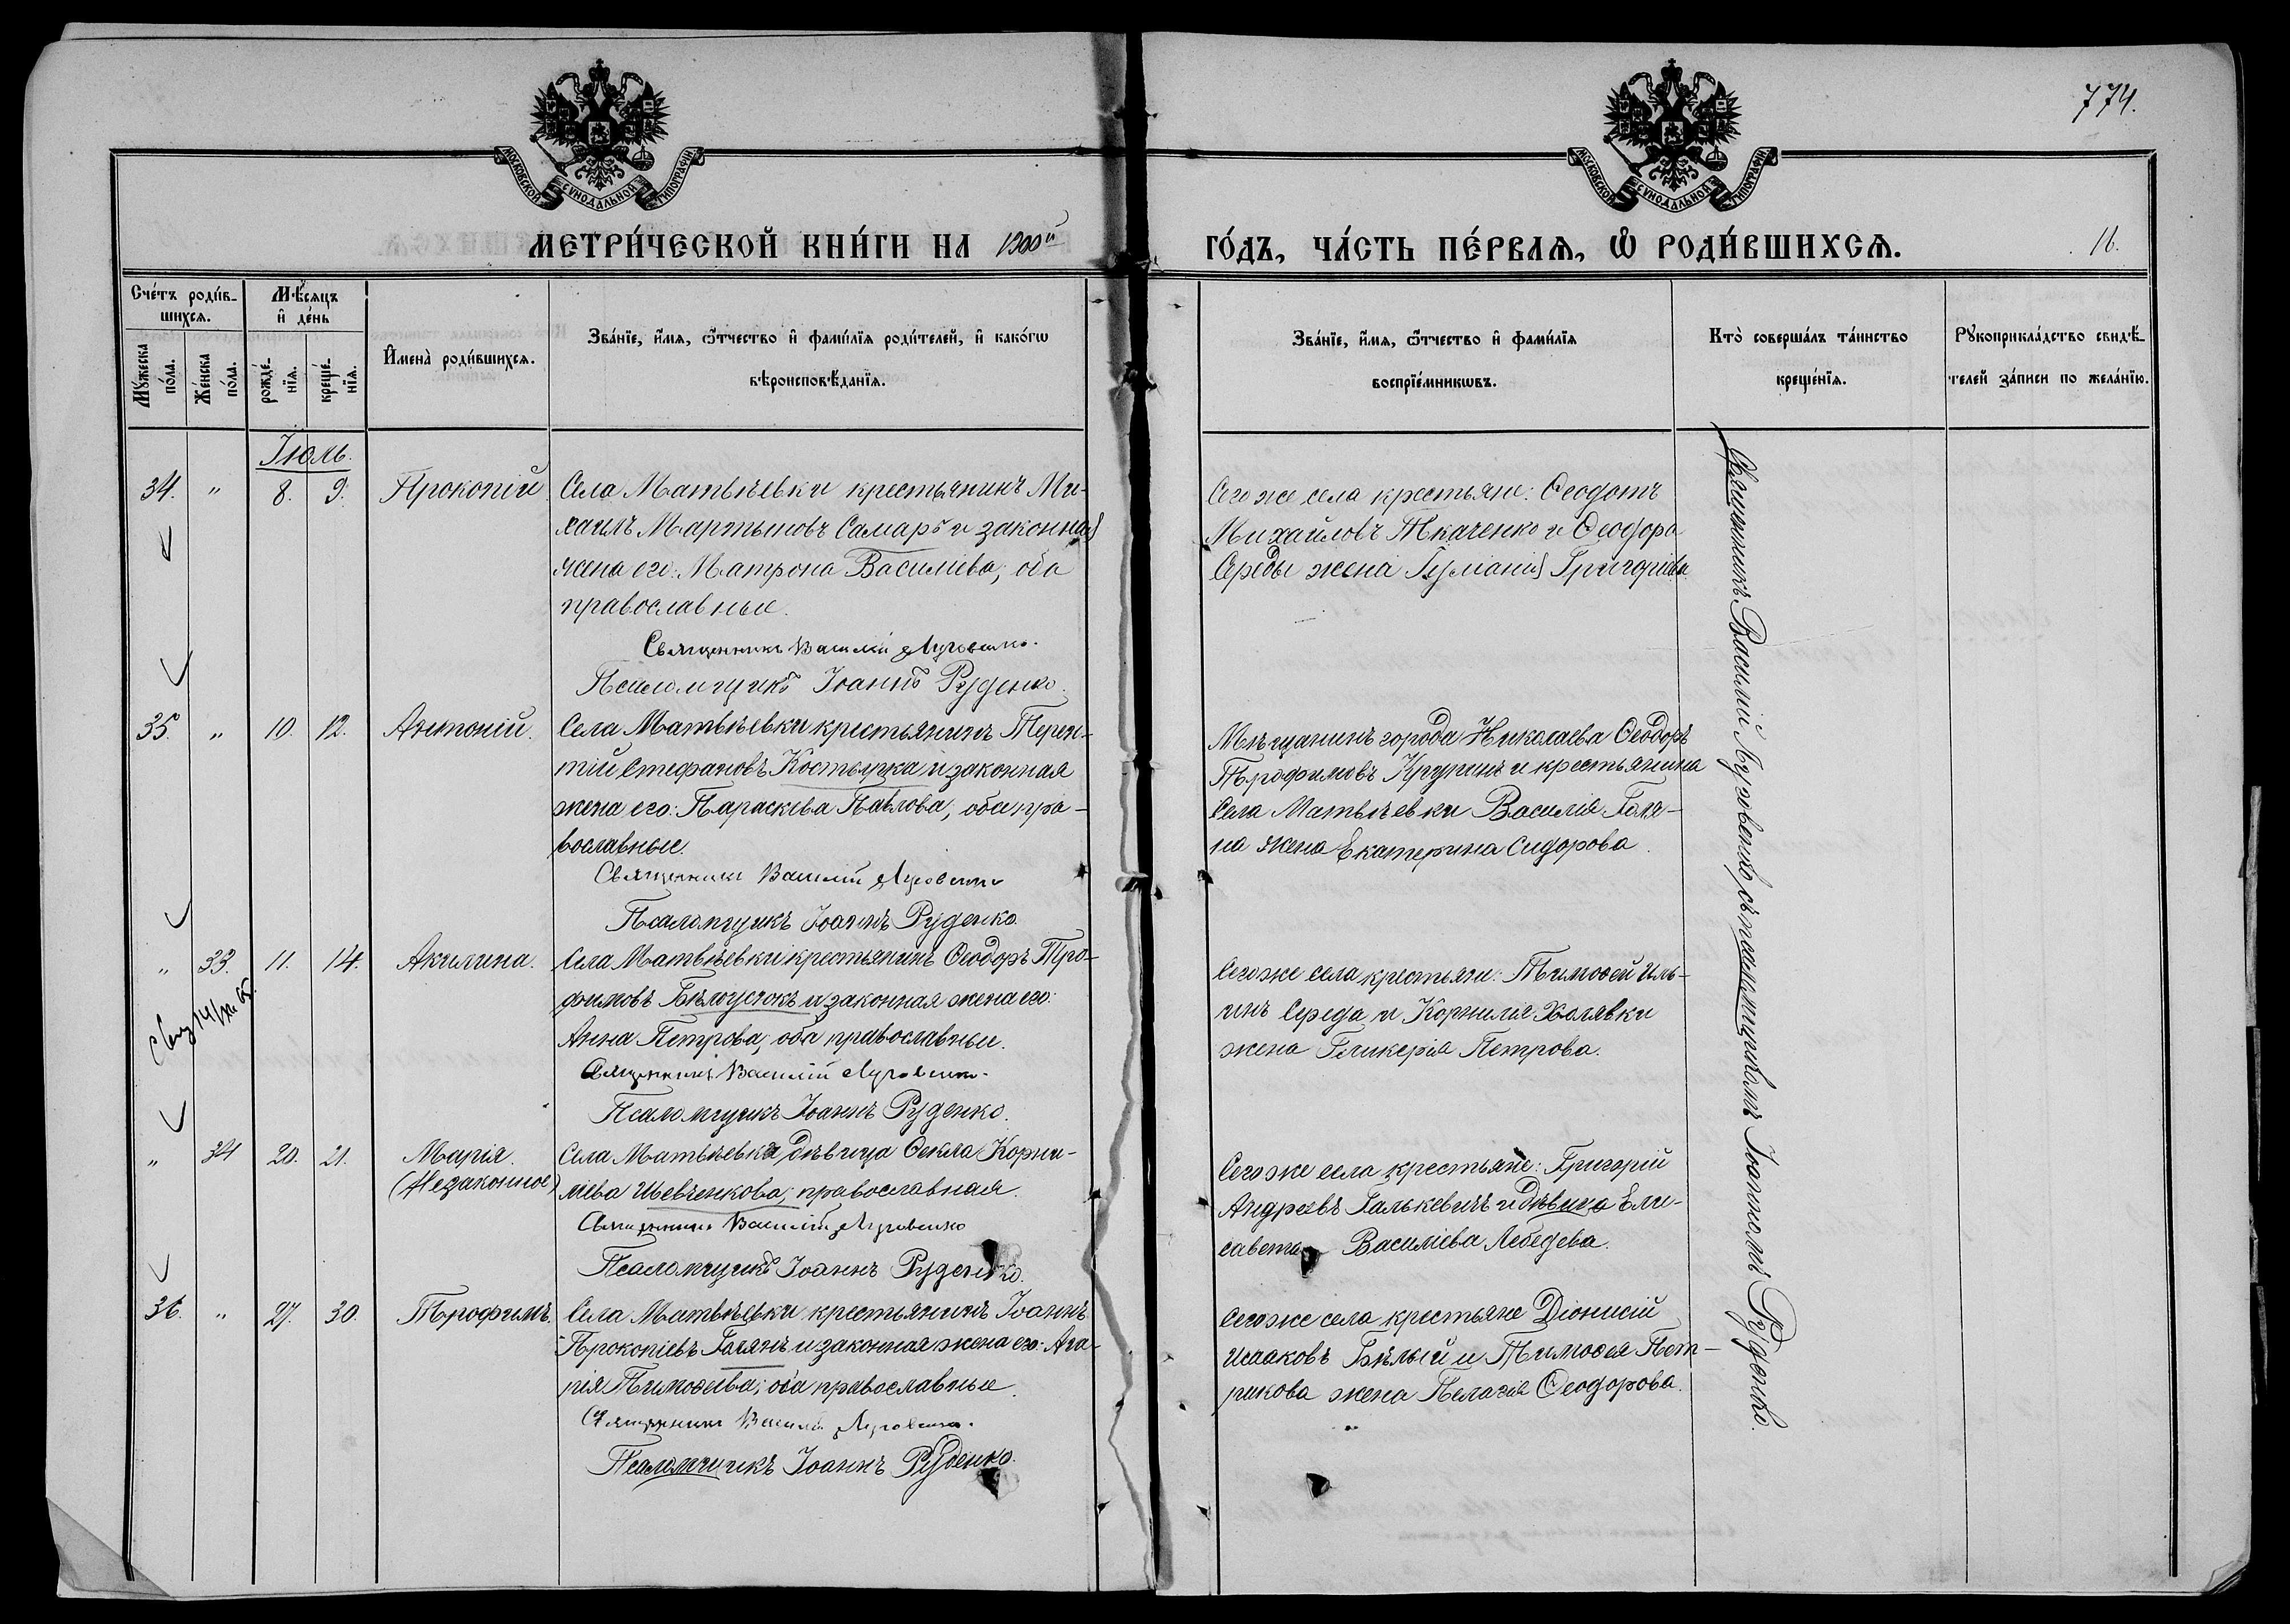 774.
МОСКОВСКОЙ СѴНОДАЛЬНОЙ ТИПОГРАФІИ
МОСКОВСКОЙ СѴНОДАЛЬНОЙ ТИПОГРАФІИ
МЕТРИ́ЧЕСКОЙ КНИ́ГИ НА 1900й
ГО́ДЪ, ЧА́СТЬ ПЕ́РВАѦ, Ѽ РОДИ́ВШИХСѦ.
16.
Сче́тъ роди́в-
шихсѧ.
Мꙋ́жеска
по́ла.
Же́нска
по́ла.
Мѣ́сѧцъ
и҆ де́нь
рожде́-
нїѧ.
креще́-
нїѧ.
И҆мена̀ роди́вшихсѧ.
Зва́нїе, и҆́мѧ, ѻ҆́тчество и҆ фами́лїѧ роди́телей, и҆ како́гѡ
вѣроисповѣ́данїѧ.
Зва́нїе, и҆́мѧ, ѻ҆́тчество и҆ фами́лїѧ
воспрїе́мникѡвъ.
Кто̀ соверша́лъ та́инство
креще́нїѧ.
Рꙋкоприкла́дство свидѣ́-
телей за́писи по жела́нїю.
Іюль.
34. " 8. 9. Прокопій
Села Матвѣевки крестьянинъ Ми-
хаилъ Мартыновъ Самаръ и законная
жена его: Матрона Василіева, оба
православные.
Священникъ Василій Луговенко.
Псаломщикъ Іоаннъ Руденко.
Сего же села крестьяне: Ѳеодотъ
Михайловъ Ткаченко и Ѳеодора
Середы жена Григоріева
35. " 10. 12. Антоній.
Села Матвѣевки крестьянинъ Терен-
тій Стефановъ Костыучка и законная
жена его: Параскева Павлова, оба пра-
вославные.
Священникъ Василій Луговенко
Псаломщикъ Іоаннъ Руденко.
Мѣщанинъ города Николаева Ѳеодоръ
Трофимовъ Крупинъ и крестьянина
Села Матвѣевки Василія Галя-
на жена Екатерина Сидорова.
" 33. 11. 14. Акилина.
Села Матвѣевки крестьянинъ Ѳеодоръ Тро-
фимовъ Бѣлоусюкъ и законная жена его:
Анна Петрова, оба православные.
Священникъ Василій Луговенко.
Псаломщикъ Іоаннъ Руденко.
Сего же села крестьяне: Тимоѳей Иль-
инъ Середа и Корнилія Холявки
жена Гликерія Петрова.
" 34 20. 21. Марія.
(Незаконное)
Села Матвѣевки дѣвица Ѳекла Корни-
ліева Шевченкова, православная.
Священникъ Василій Луговенко
Псаломщикъ Іоаннъ Руденко.
Сего же села крестьяне: Григорій
Андреевъ Галькевичъ и дѣвица Ели-
савета Василіева Лебедева.
36. " 27. 30. Трофимъ.
Села Матвѣевки крестьянинъ Іоаннъ
Прокопіевъ Галянъ и законная жена его: Ага-
рія Тимоѳеева, оба православные.
Священникъ Василій Луговенко.
Псаломщикъ Іоаннъ Руденко.
Сего же села крестьяне Діонисій
Исааковъ Бѣлый и Тимоѳея Пет-
рикова жена Пелагія Ѳеодорова.
Священникъ Василій Луговенко, съ псаломщикомъ Іоанномъ Руденко.